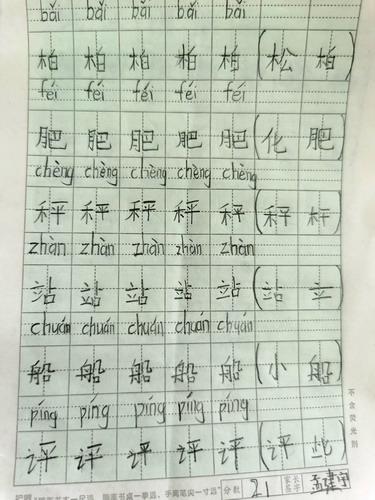 bǎi bǎi bǎi bǎi bǎi
柏 柏 柏 柏 柏 (松 柏)
féi féi féi féi féi
肥 肥 肥 肥 肥 (化 肥)
chèng chèng chèng chèng chèng
秤 秤 秤 秤 秤 (秤 杆)
zhàn zhàn zhàn zhàn zhàn
站 站 站 站 站 (站 立)
chuán chuán chuán chuán chuán
船 船 船 船 船 (小 船)
píng píng píng píng píng
评 评 评 评 评 (评 比)
不含荧光剂
把眼"眼离书本一尺远、胸离书桌一拳远、手离笔尖一寸远" 分数 21 家长签字 孟建宁